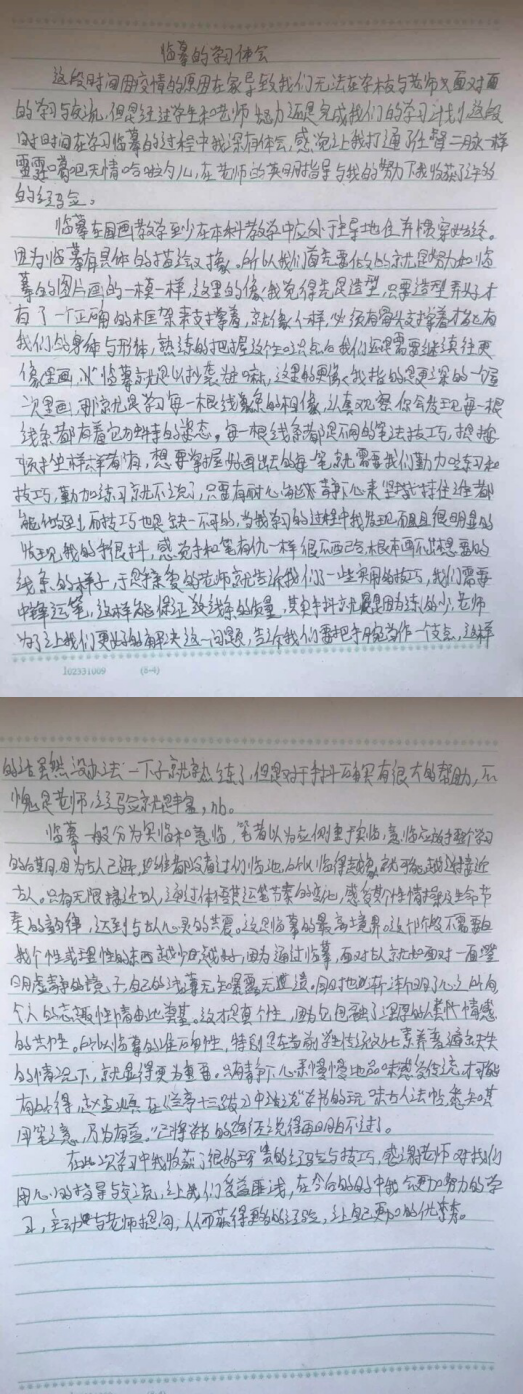 临摹的学习体会
这段时间因疫情的原因在家导致我们无法在学校与老师面对面
的学习与交流,但是经过学生和老师努力还是完成我们的学习计划,这段
时间在学习临摹的过程中我深有体会,感觉让我打通了任督二脉一样
在老师的英明指导与我的努力下我收获了许多
的经验。
临摹在国画教学至少在本科教学中应处于主导地位并惯穿始终。
因为临摹有具体的描绘对像。所以我们首先要做的就是努力和临
摹的图片画的一模一样,这里的像我觉得先是造型,只要造型弄好才
有了一个正确的框架来支撑着,就像人一样,必须有骨头支撑着才能有
我们的身体与形体,熟练的把握这个我们还是需要继续往更
像里画,临摹这里的更像我指的是更深的一个层
次里画,那就是学习每一根线条的相像,认真观察你会发现每一根
线条都有着它的姿态。每一根线条都是不同的笔法技巧,
想要掌握好画出去的每一笔,就需要我们勤加练习和
技巧,勤加练习就不说了,只要有耐心能静下心来坚持住谁都
能做到,而技巧也是缺一不可的,当我学习的过程中我发现而且很明显的
发现我的手很抖,感觉手和笔有仇一样很不配合,根本画不出想要的
线条的样子,于是老师就告诉我们了一些实用的技巧,我们需要
中锋运笔,这样能保证线条的质量,其实手抖就是因为练的少,老师
为了让我们更好的解决这一问题,告诉我们要把手腕当作一个支点,这样
的话虽然没办法一下子就熟练了,但是对于手抖确实有很大的帮助,不
愧是老师,经验就是丰富,nb。
临摹一般分为实临和意临,笔者以为应侧重实临,意临应放于整个学习
的后期,因为古人已逝,所以临得越像就可能越接近
古人。只有无限接近古人,通过体悟其运笔节奏的变化,感受其个性情操及生命节
奏的韵律,达到与古人心灵的共震。这是临摹的最高境界。这个阶段不需要自
我个性或理性的东西越少越好,因为通过临摹,面对古人就如面对一面澄
明虚静的镜子,自己的暴露无遗。
个人的志趣性情由此奠基。这才是真个性,因为它包融了深厚的人类情感
的共性。所以临摹的准确性,特别是在当前学生传统文化素养普遍缺失
的情况下,就显得更为重要。只有静下心来慢慢地品味感受传统,才可能
有所得,赵孟頫在《兰亭十三跋》中说"学书在玩味古人法帖,悉知其
用笔之意,乃为有益。"已将学书的途径说得再明白不过了。
在此次学习中我收获了很多宝贵的经验与技巧,感谢老师对我们
用心的指导与交流,让我们受益匪浅,在今后的日子中我会更加努力的学
习,主动与老师提问,从而获得更多的经验,让自己更加的优秀。